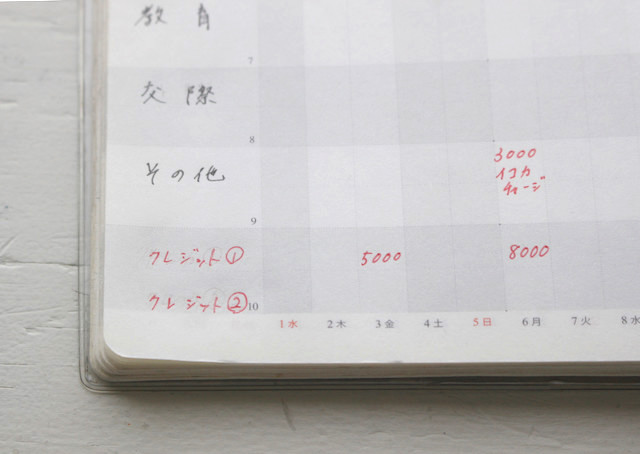 教育
7
交際
8
3000
その他 イコカ
チャージ
9
クレジット① 5000 8000
クレジット② 10
1水 2木 3金 4土 5日 6月 7火 8水